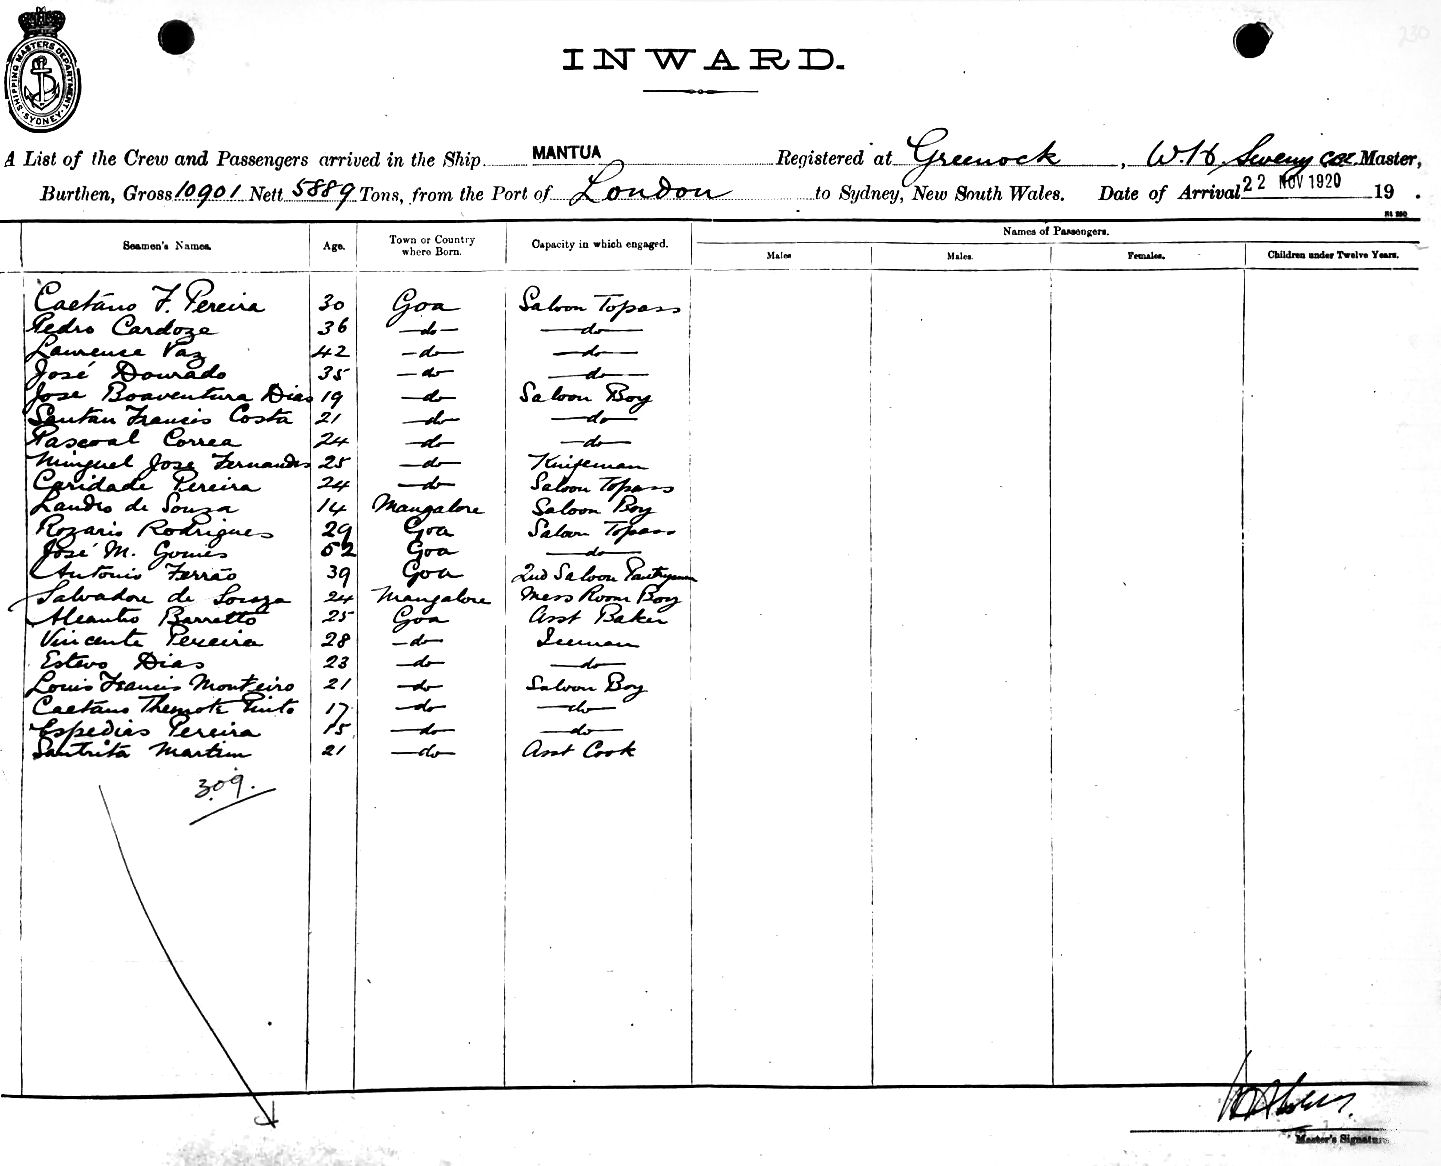 230
SHIPPING MASTERS DEPARTMENT
SYDNEY
INWARD.
A List of the Crew and Passengers arrived in the Ship MANTUA Registered at Greenock, W.H. Master,
Burthen, Gross 10901 Nett 5889 Tons, from the Port of London to Sydney, New South Wales. Date of Arrival 22 NOV 1920 19 .
Seamen's Names. Age. Town or Country where Born. Capacity in which engaged. Names of Passengers.
Males Males. Females. Children under Twelve Years.
Caetano F. Pereira 30 Goa Saloon Topass
Pedro Cardoze 36 do do
Laurense Vaz 42 do do
José Dourado 35 do do
Jose Boaventura Dias 19 do Saloon Boy
Santan Francis Costa 21 do do
Pascoal Correa 24 do do
Minguel Jose Fernandes 25 do Knifeman
Caridade Pereira 24 do Saloon Topass
Landro de Souza 14 Mangalore Saloon Boy
Rozario Rodrigues 29 Goa Saloon Topass
José M. Gomes 52 Goa do
Antonio Ferrão 39 Goa 2nd Saloon Pantryman
Salvadore de Souza 24 Mangalore Mess Room Boy
Barretto 25 Goa Asst Baker
Vincente Pereira 28 do Iceman
Estevo Dias 23 do do
Louis Francis Monteiro 21 do Saloon Boy
Caetano Pinto 17 do do
Espedias Pereira 15 do do
Santrita Martin 21 do Asst Cook
309.
Master's Signature